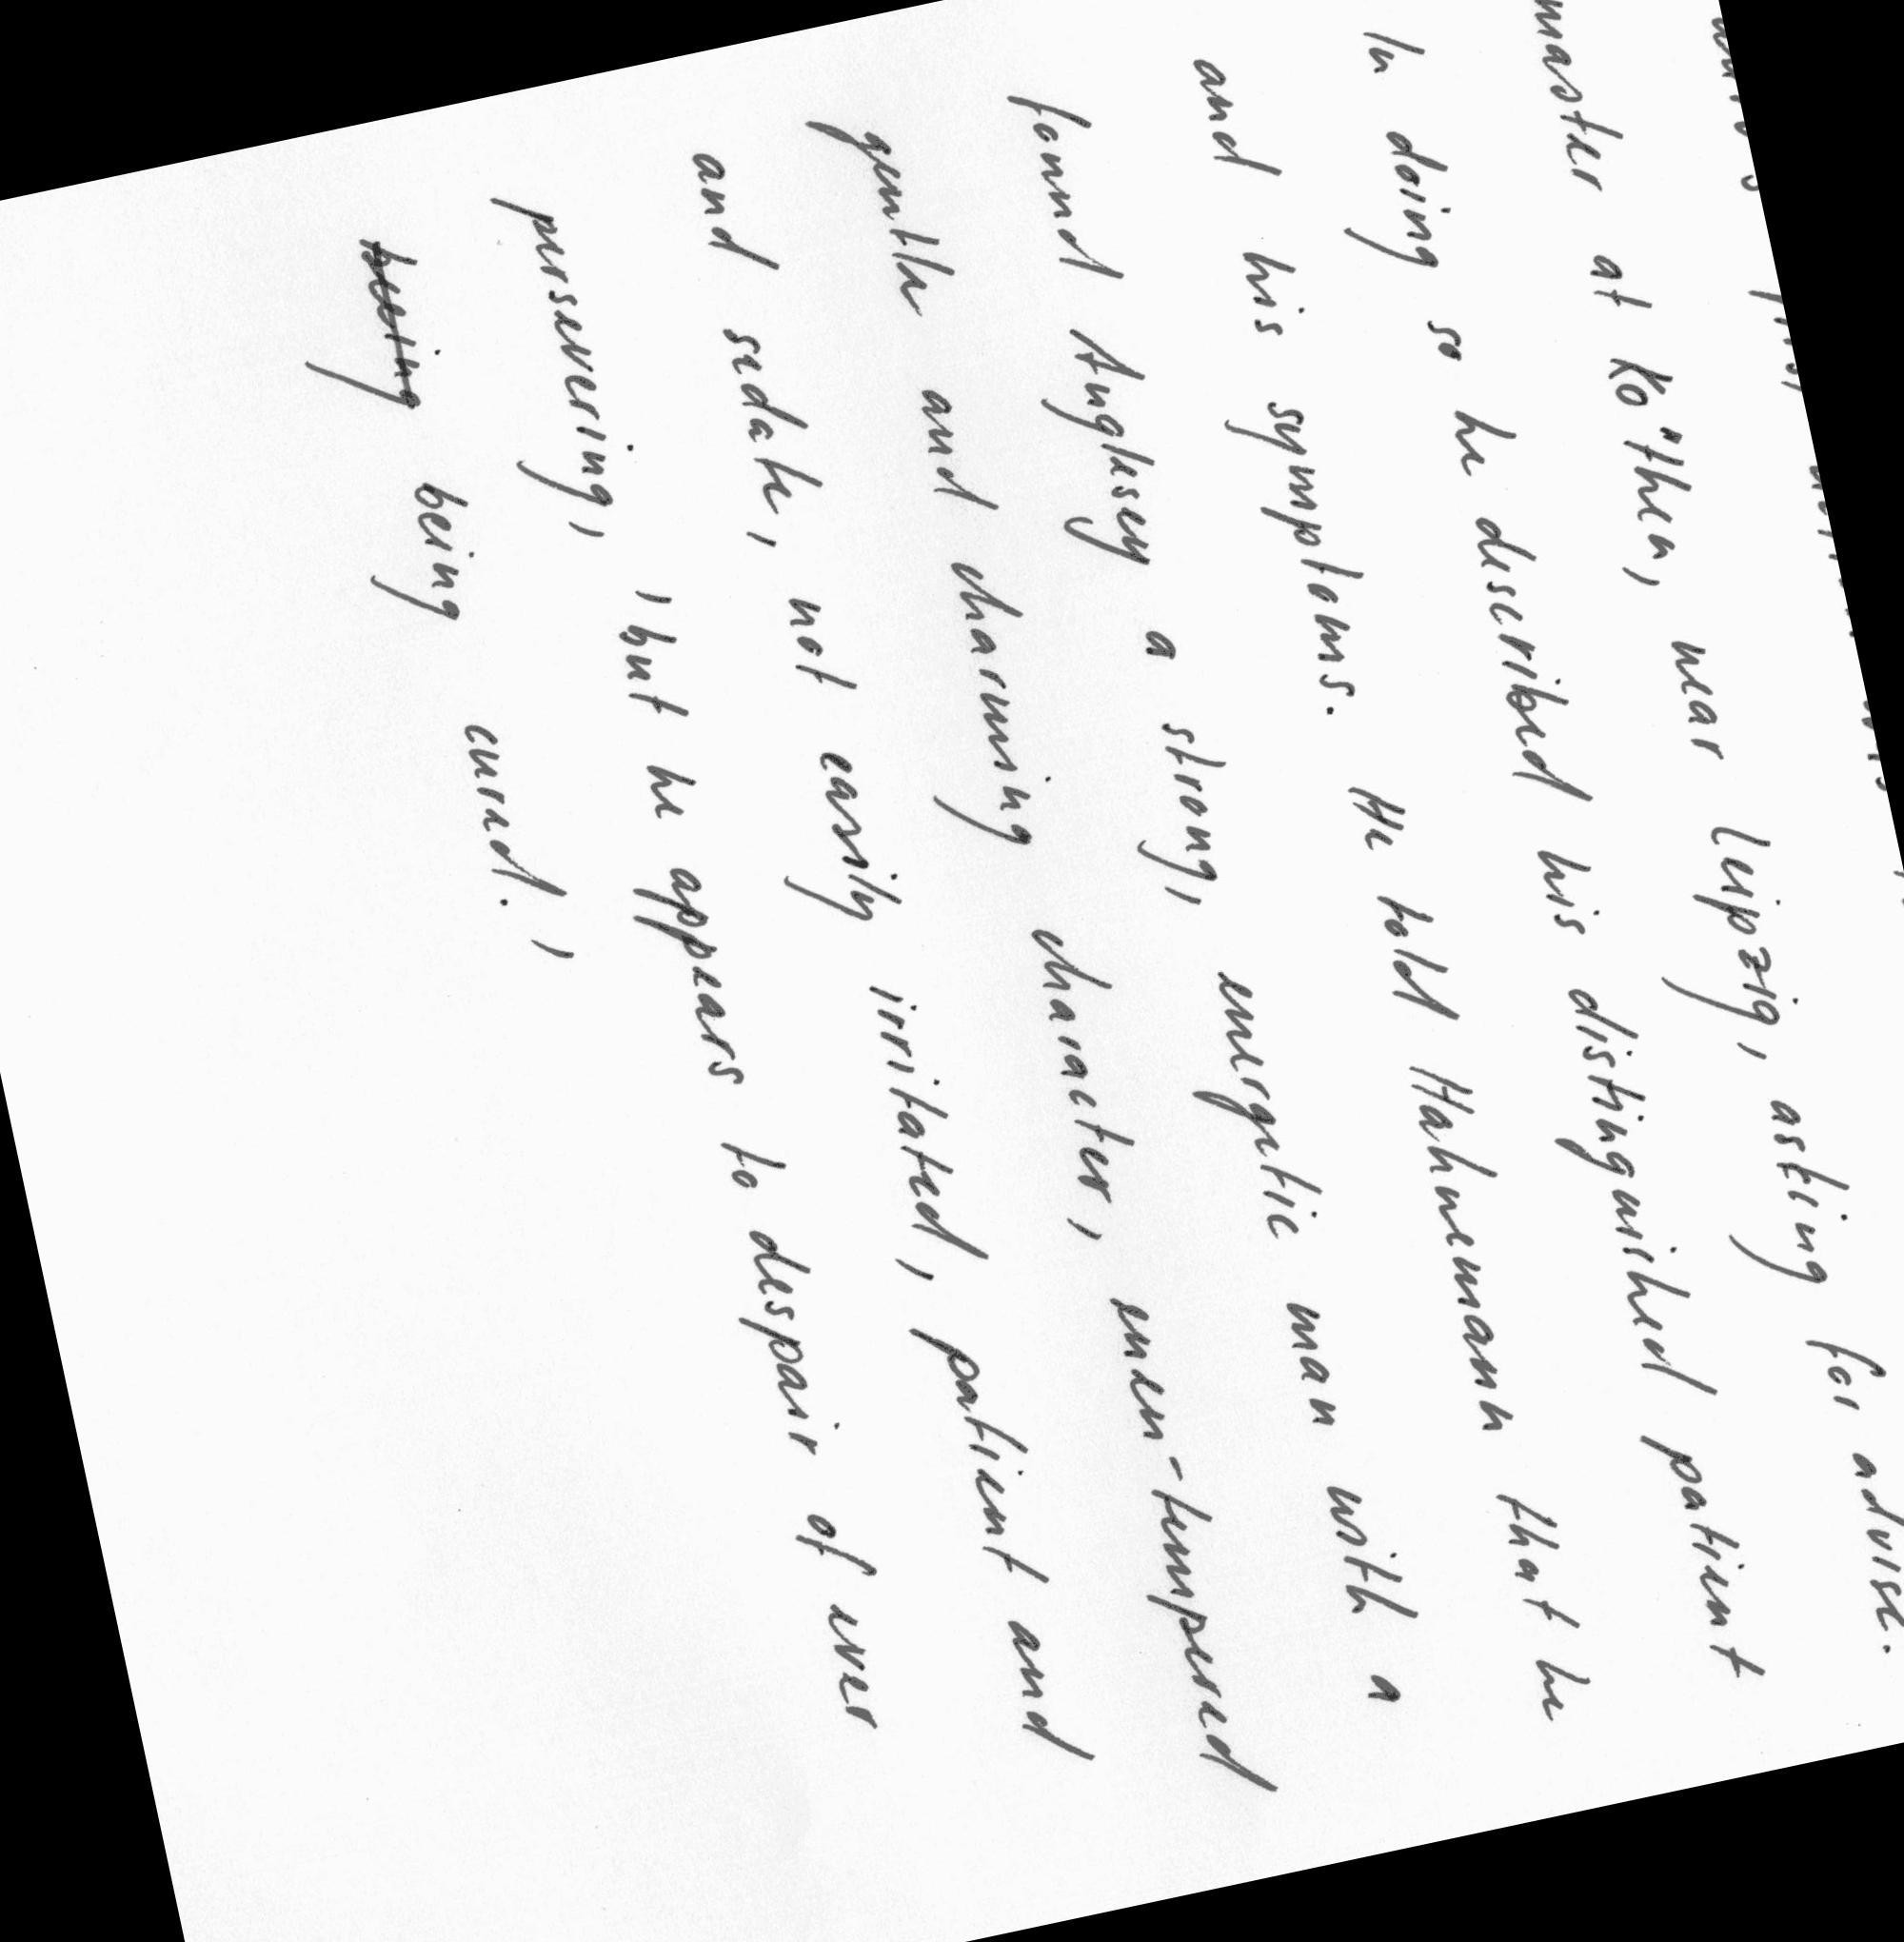 master at Köthen, near Leipzig, asking for advise.
In doing so he described his distinguished patient
and his symptoms. He told Hahnemann that he
found Anglesey a strong, energetic man with a
gentle and charming character, even-tempered
and sedate, not easily irritated, patient and
persevering, , but he appears to despair of ever
being being cured. ,